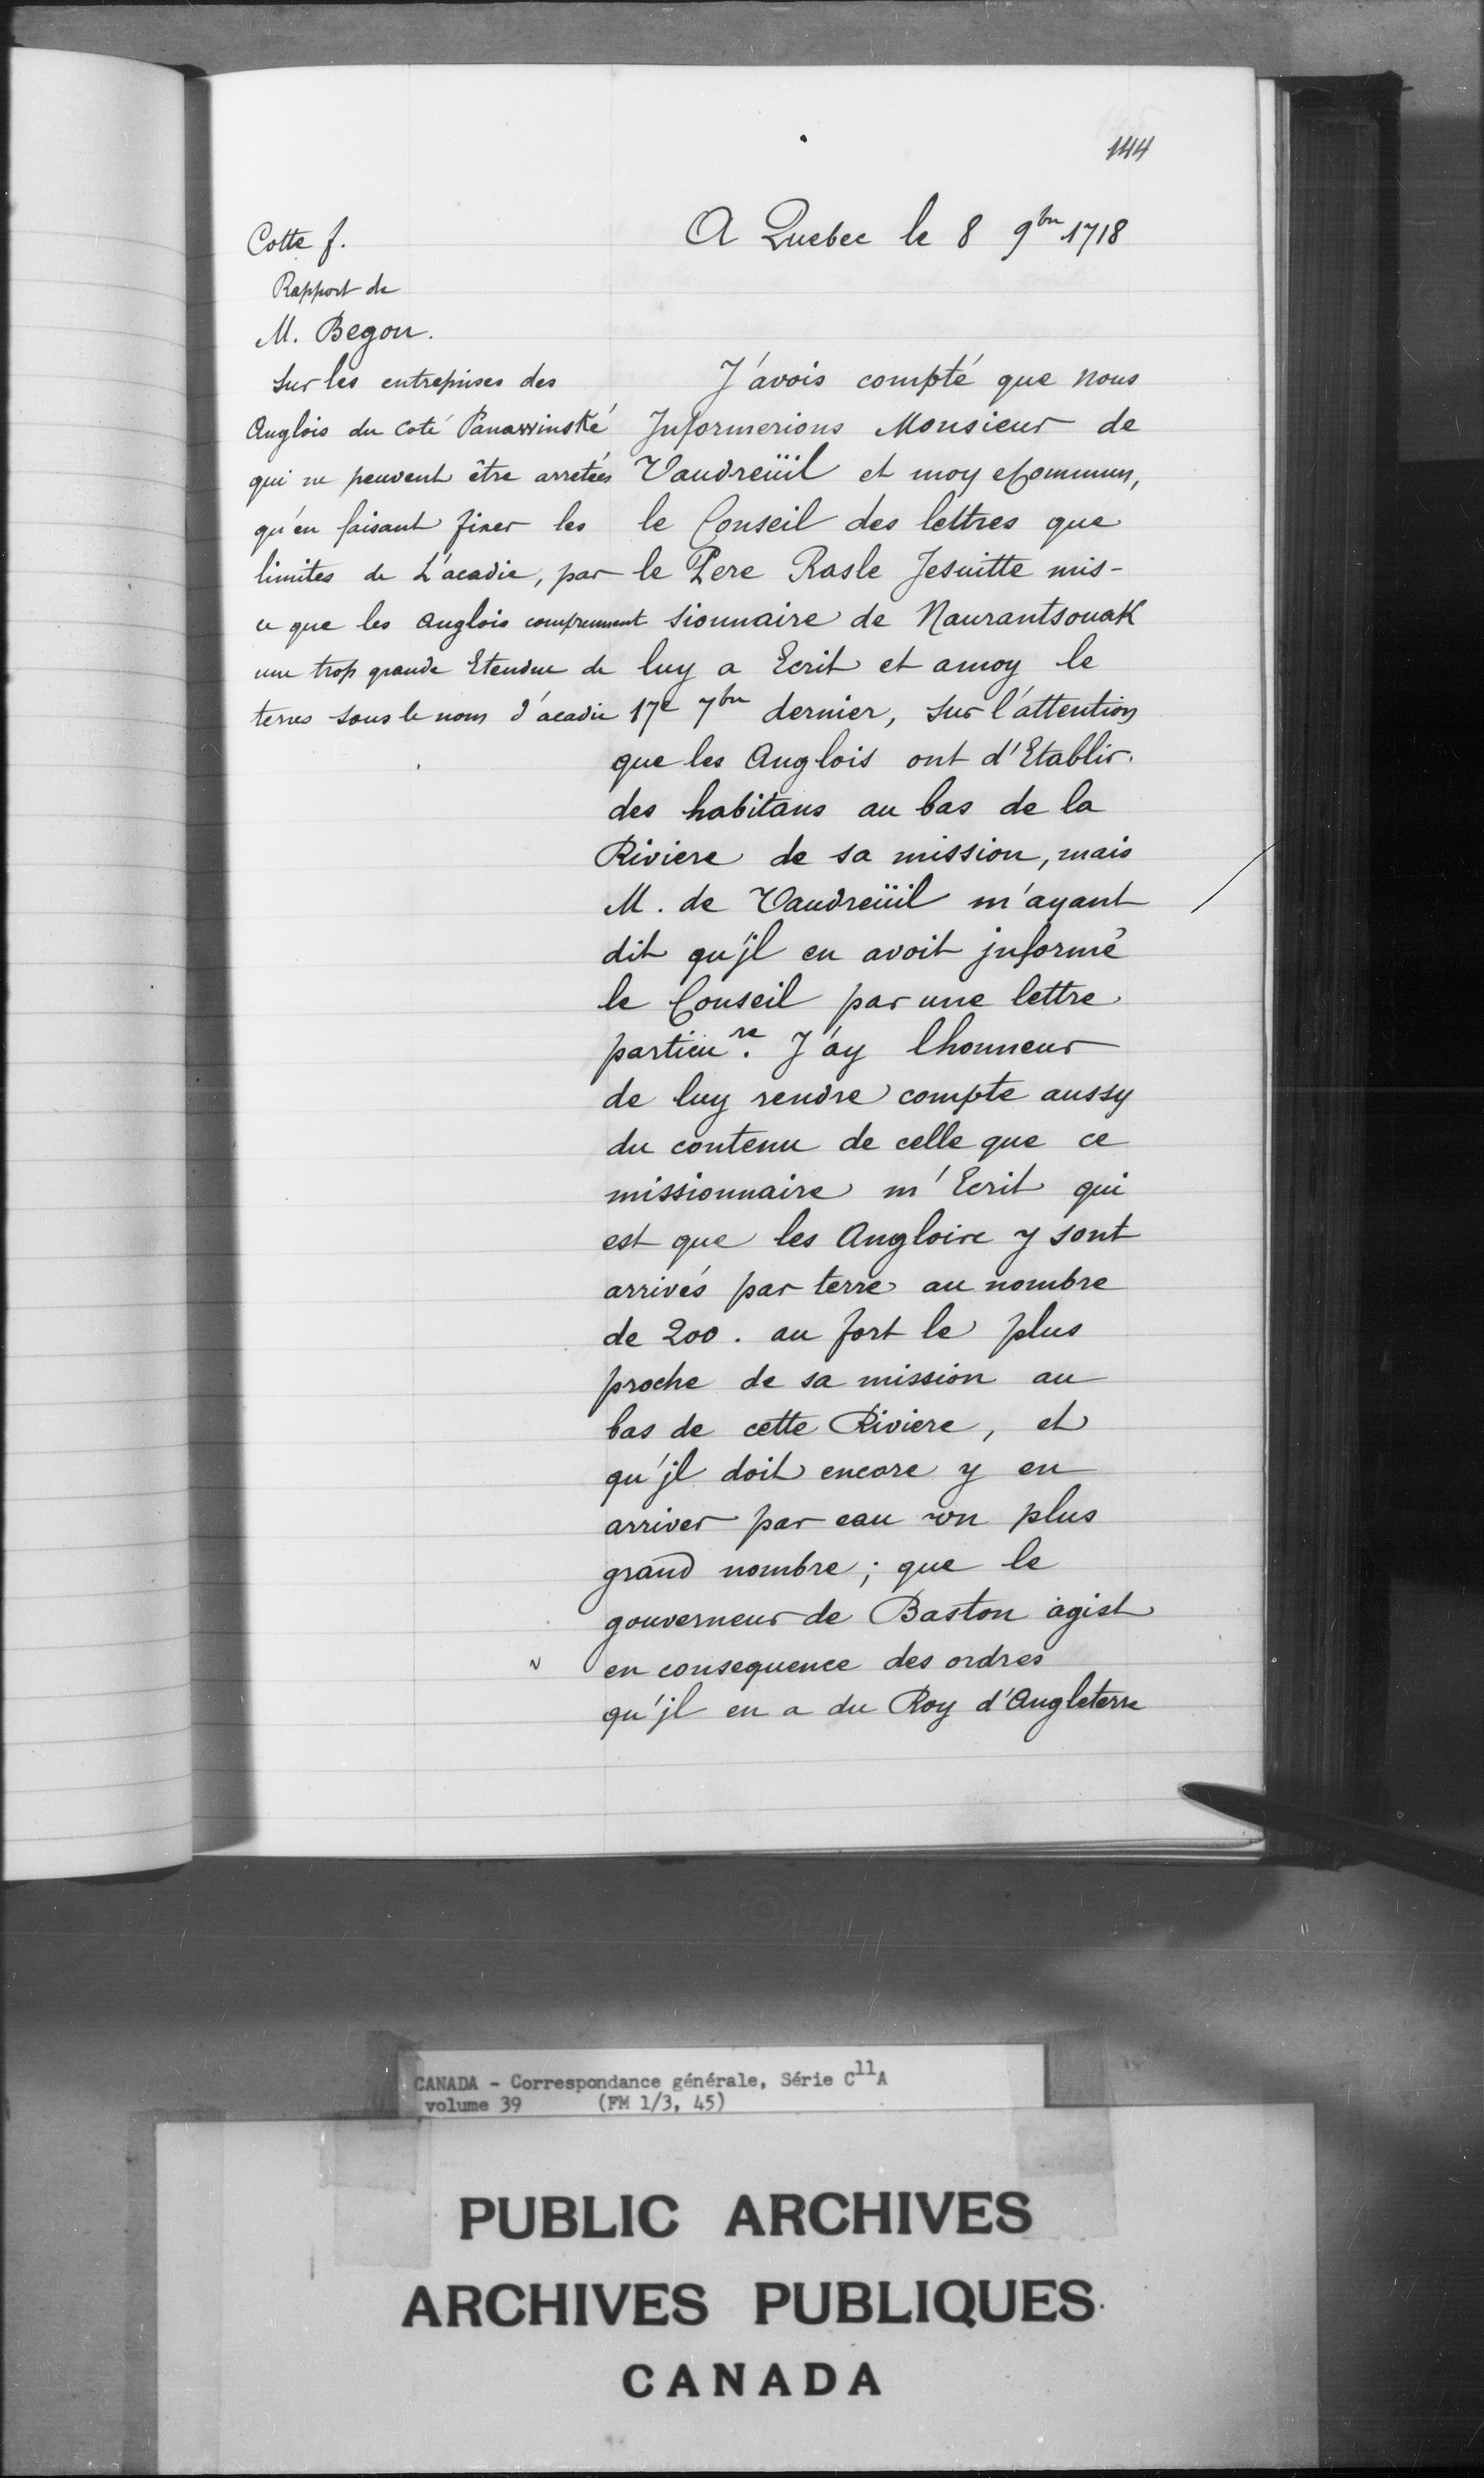 144
A Quebec le 8 9bre 1718
Cotte f.
Rapport de
M. Begon.
Sur les entreprises des
Anglois du coté Panawinské
qui ne peuvent être arretées
qu'en faisant fixer les
limites de L'acadie, par
ce que les anglois comprennent
une trop grande Etendue de
terres sous le nom d'acadie
J'avois compté que nous
Informerions Monsieur de
Vaudreüil et moy en Commun,
le Conseil des lettres que
le Pere Rasle Jesuitte mis-
sionnaire de Naurantsouak
luy a Ecrit et amoy le
17e 7bre dernier, sur l'attention
que les Anglois ont d'Etablir
des habitans au bas de la
Riviere de sa mission, mais
M. de Vaudreüil m'ayant
dit qu'jl en avoit jnformé
le Conseil par une lettre
particure. J'ay lhonneur
de luy rendre compte aussy
du contenu de celle que ce
missionnaire m'Ecrit qui
est que les Angloire y sont
arrivés par terre au nombre
de 200. au fort le plus
proche de sa mission au
bas de cette Riviere, et
qu'jl doit encore y en
arriver par eau un plus
grand nombre; que le
gouverneur de Baston agist
en consequence des ordres
qu'jl en a du Roy d'Angleterre
CANADA - Correspondance générale, Série C11A
volume 39 (FM 1/3, 45)
PUBLIC ARCHIVES
ARCHIVES PUBLIQUES
CANADA